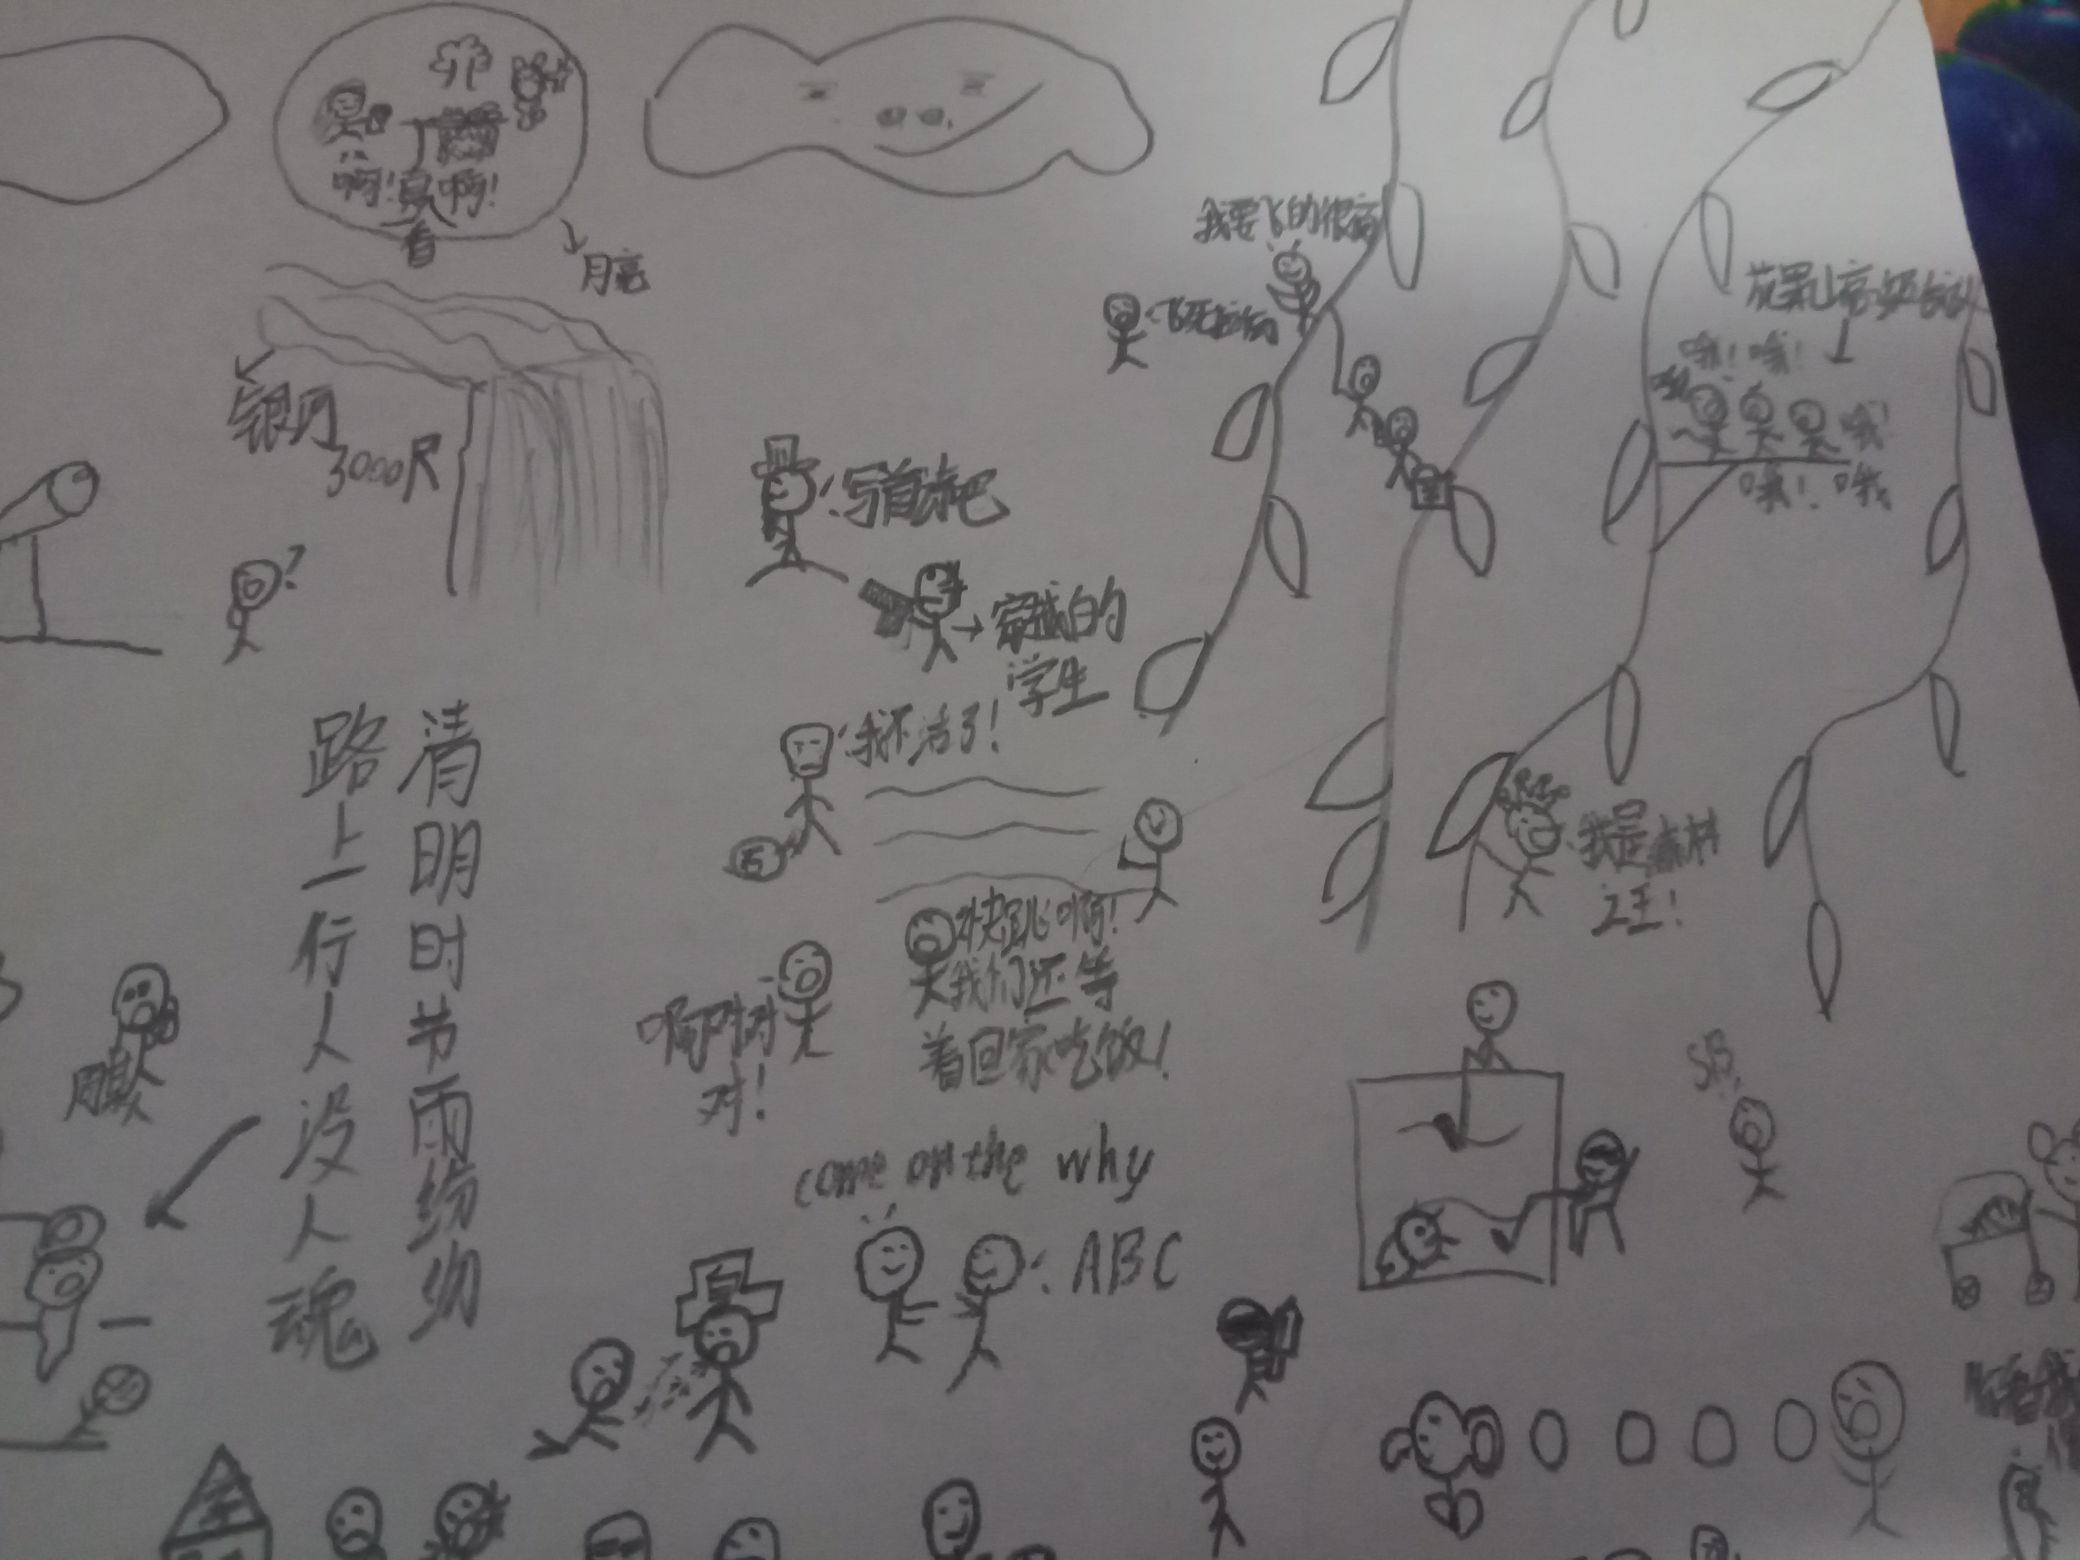 啊!真啊!
香
月亮
我要飞的很高
银河
3000尺
写首诗吧
穿越的
学生
我不活了!
快跳啊!
我们还等
着回家吃饭!
啊对对
对!
我是森林
之王!
哦!哦!
哦!
哦!哦
清明时节雨纷纷
路上行人没人魂
come on the why
ABC
SB